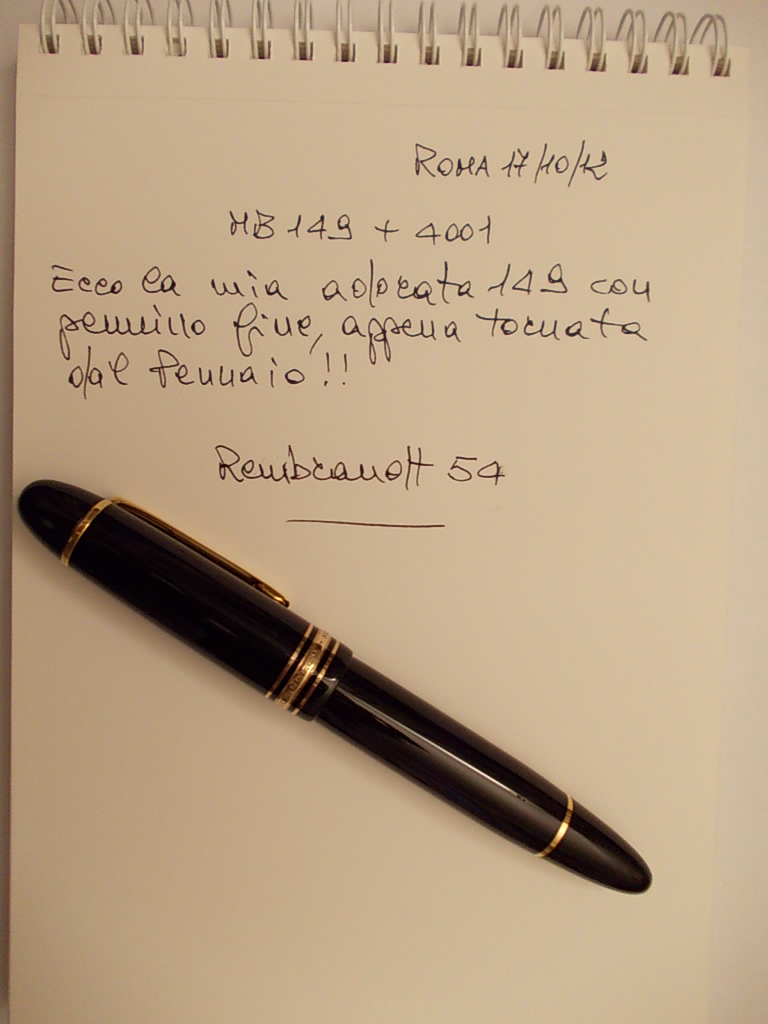 ROMA 17/10/12
MB 149 + 4001
Ecco la mia adorata 149 con
pennino fine, appena tornata
dal Pennaio!!
Rembrandt 54